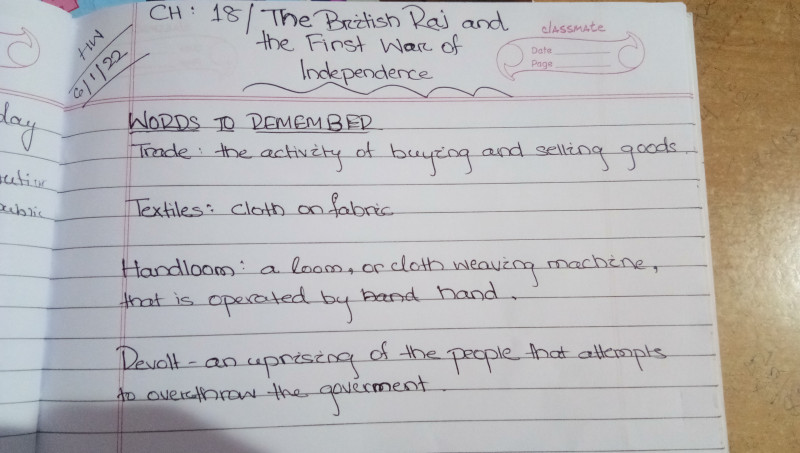 HW
6/1/22
CH : 18/ The British Raj and
the First War of
Independence
classmate
Date
Page
day
WORDS TO REMEMBER
Trade : the activity of buying and selling goods.
Textiles : cloth on fabric
Handloom : a loom, or cloth weaving machine,
that is operated by hand hand.
Revolt - an uprising of the people that attempts
to overthrow the goverment.